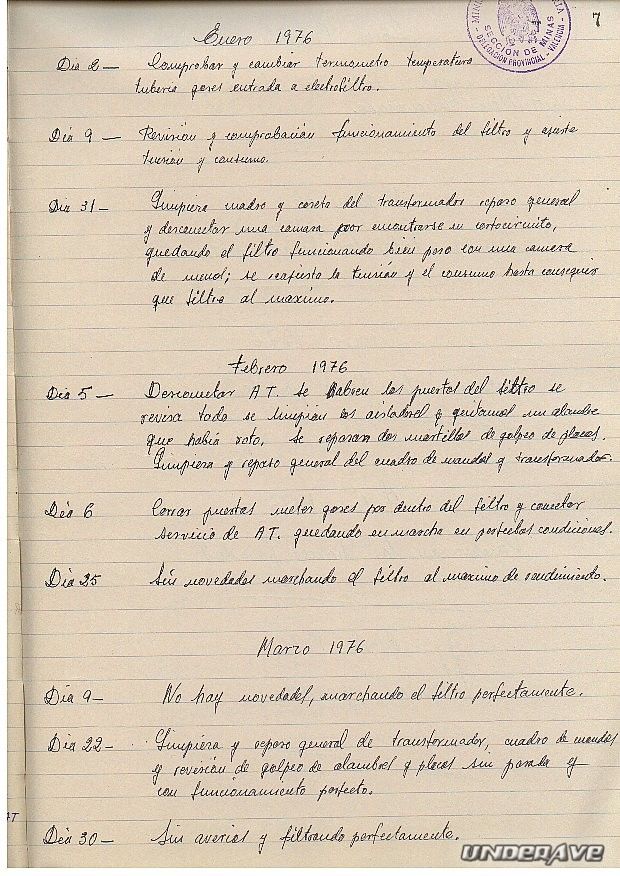 7
SECCION DE MINAS
DELEGACION PROVINCIAL - VALENCIA
Enero 1976
Dia 2 — Comprobar y cambiar termometro temperatura
tuberia gases entrada a electrofiltro.
Dia 9 — Revisión y comprobación funcionamiento del filtro y ajuste
tensión y consumo.
Dia 31 — Limpieza cuadro y careta del transformador repaso general
y desconectar una camara por encontrarse en cortocircuito,
quedando el filtro funcionando bien pero con una camera
de menos; se reajusta la tensión y el consumo hasta conseguir
que filtre al maximo.
Febrero 1976
Dia 5 — Desconectar A.T. se habren las puertas del filtro se
revisa todo se limpian los aisladores y quitamos un alambre
que habia roto, se reparan dos martillos de golpeo de placas.
Limpieza y repaso general del cuadro de mandos y transformador.
Dia 6 Cerrar puertas meter gases por dentro del filtro y conectar
servicio de A.T. quedando en marcha en perfectas condiciones.
Dia 25 Sin novedades marchando el filtro al maximo de rendimiento.
Marzo 1976
Dia 9 — No hay novedades, marchando el filtro perfectamente.
Dia 22 — Limpieza y repaso general de transformador, cuadro de mandos
y revisión de golpeo de alambres y placas sin parada y
con funcionamiento perfecto.
AT
Dia 30 — Sin averias y filtrando perfectamente.
UNDERAVE